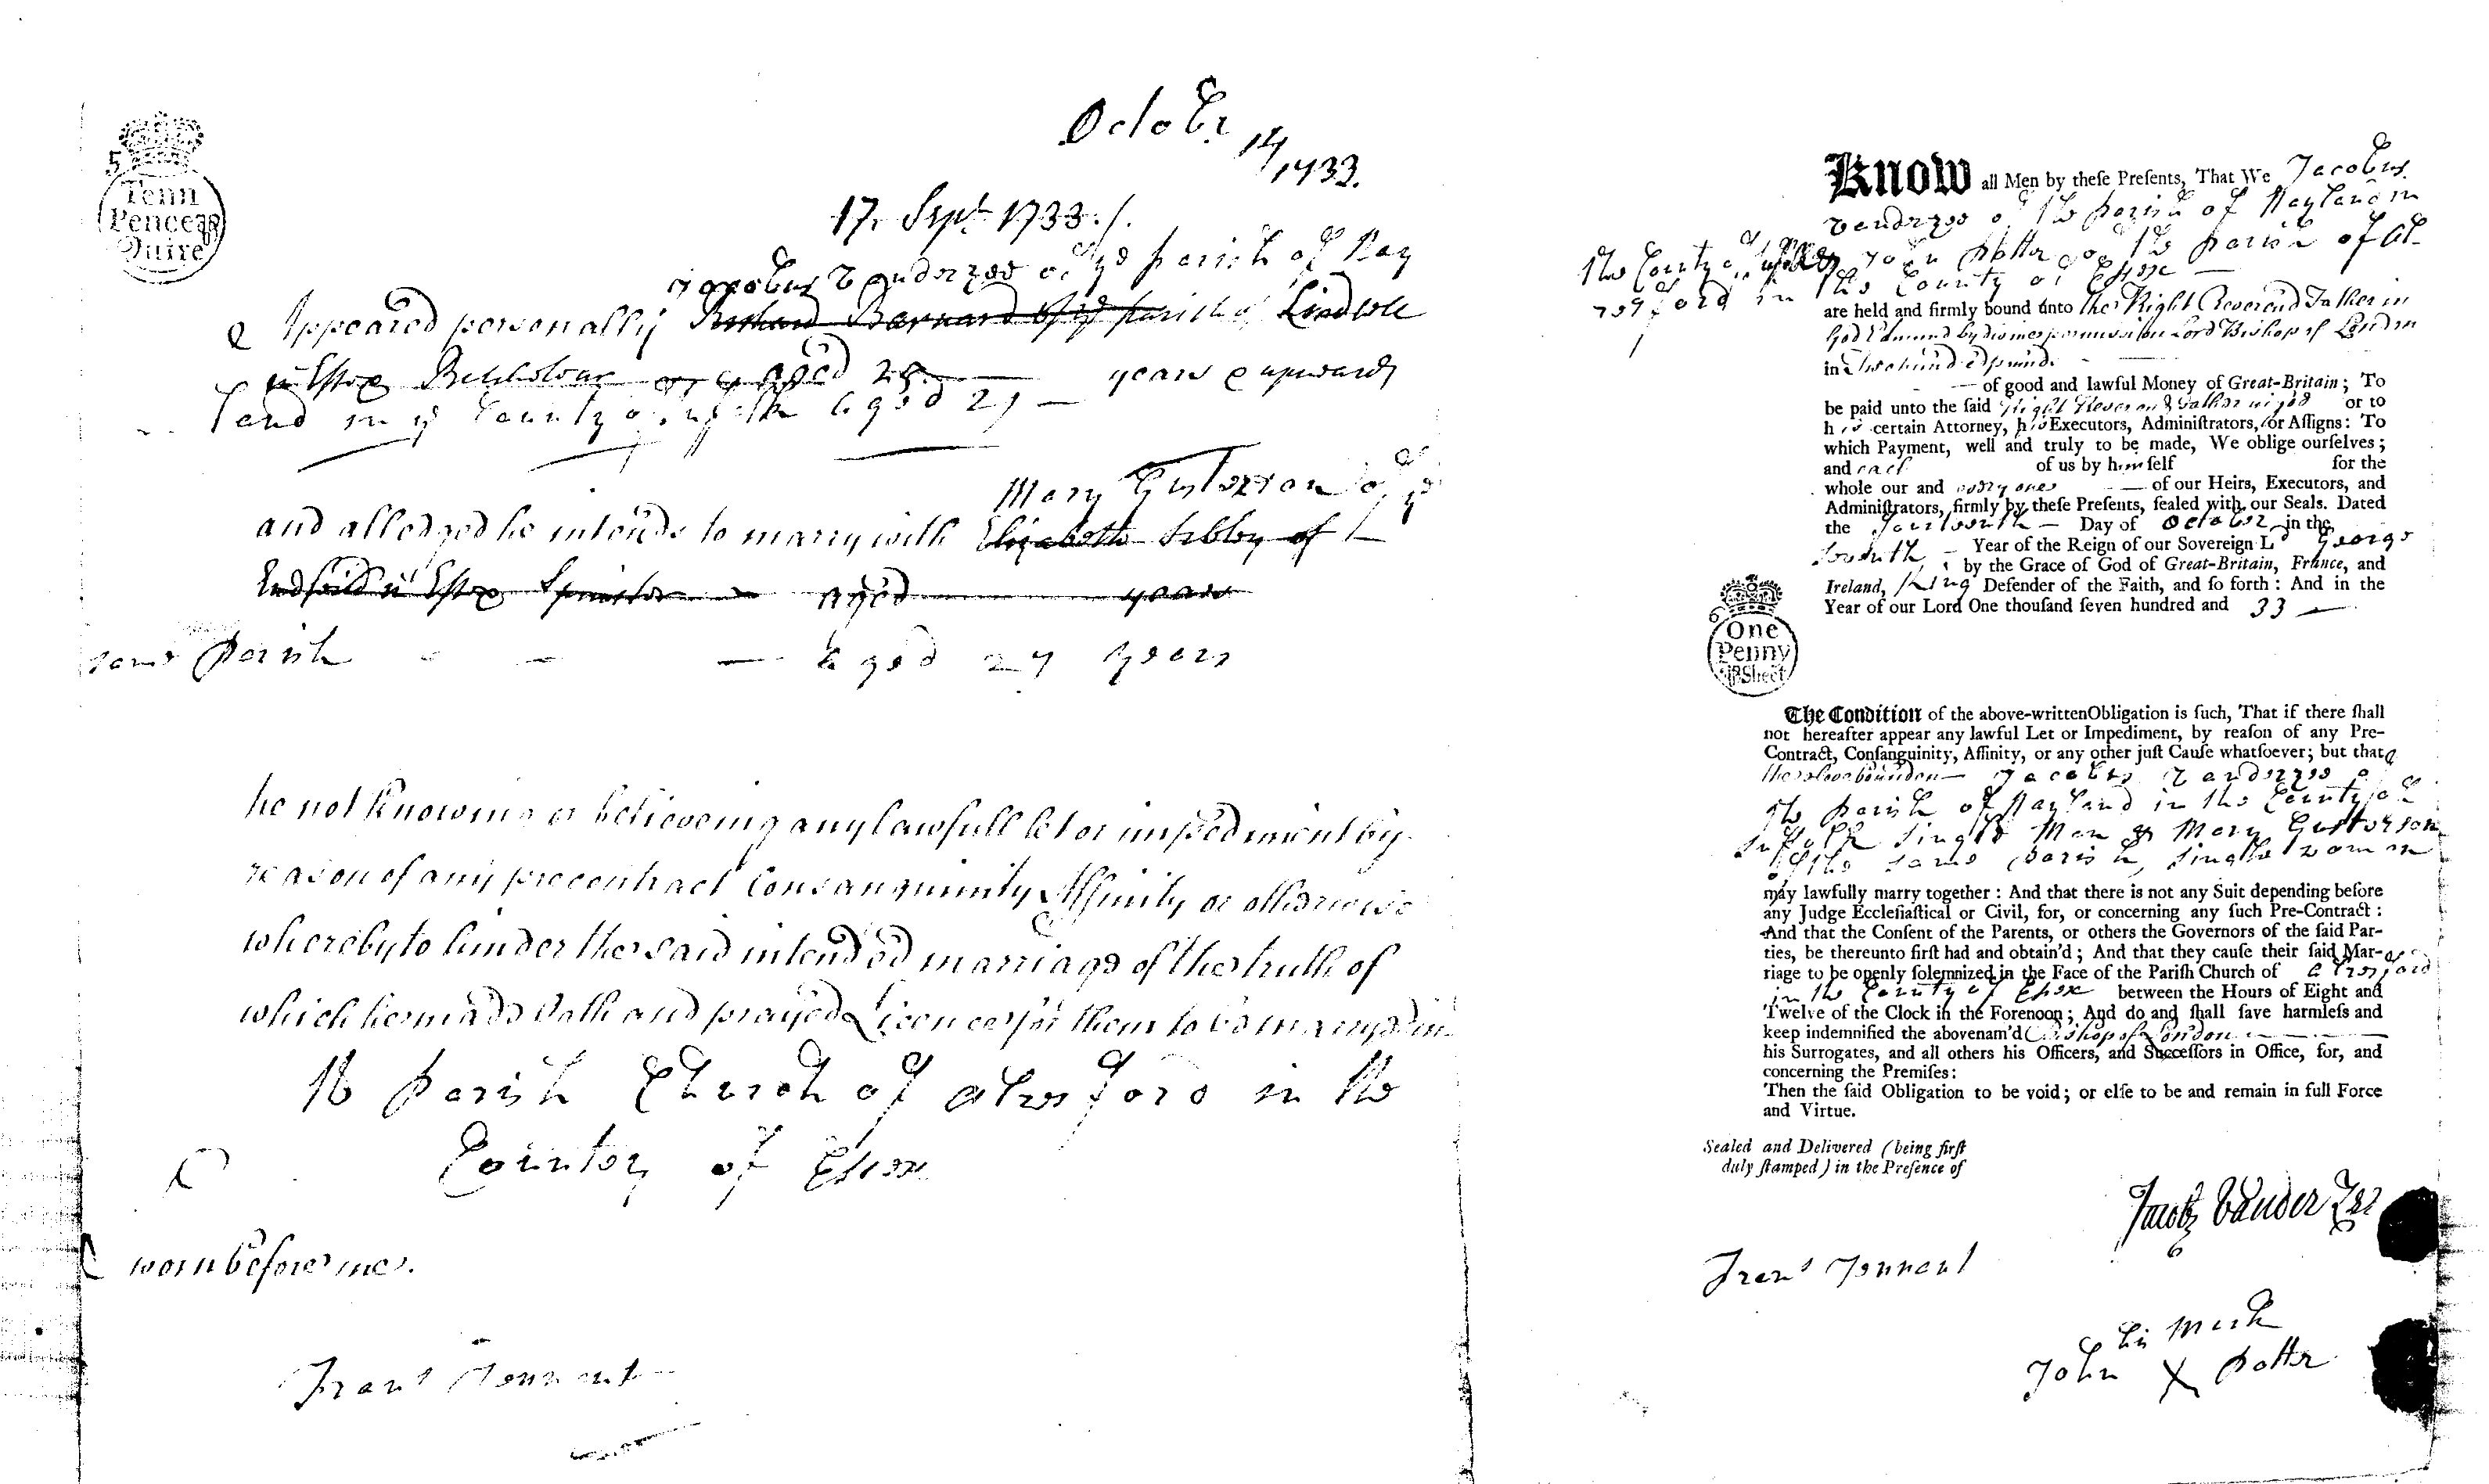 Octobr 14
1733.
17. Sept. 1733./.
Jacobus Vanderzee of ye parish of Nay
Appeared personally Richard Barnard of ye parish of Lindsell
in Essex Batchelour aged 25 years & upwards
land in ye County of Suffolk Aged 27
Mary Gusterson of ye
and alledged he intends to marry with Elizabeth Sibley of
in Essex Spinster aged years
same parish Aged 27 years
he not knowing or believeing any lawfull let or impediment by
reason of any precontract Consanguinity Affinity or otherwise
whereby to hinder the said intended marriage of the truth of
which he made Oath and prayed Licence for them to be marryed in
the parish Church of Alresford in the
County of Essex
Sworn before me.
Frans Tennant
5
Tenn
Pence pr
Quire
Know all Men by theſe Preſents, That We Jacobus
Vanderzee of the parish of Nayland in
the County of Suffolk John Potter of the parish of Al-
resford in the County of Essex
are held and firmly bound unto the Right Reverend Father in
God Edmund by divine permission Lord Bishop of London
in Two hundred pounds
of good and lawful Money of Great-Britain; To
be paid unto the ſaid Right Reverend Father in God or to
his certain Attorney, his Executors, Adminiſtrators, or Aſſigns: To
which Payment, well and truly to be made, We oblige ourſelves;
and each of us by himſelf for the
whole our and every one of our Heirs, Executors, and
Adminiſtrators, firmly by theſe Preſents, ſealed with our Seals. Dated
the fourteenth Day of October in the
Seventh Year of the Reign of our Sovereign Ld George
by the Grace of God of Great-Britain, France, and
Ireland, King Defender of the Faith, and ſo forth: And in the
Year of our Lord One thouſand ſeven hundred and 33
6
One
Penny
pr Sheet
The Condition of the above-written Obligation is ſuch, That if there ſhall
not hereafter appear any lawful Let or Impediment, by reaſon of any Pre-
Contract, Conſanguinity, Affinity, or any other juſt Cauſe whatſoever; but that
the above bounden Jacobus Vanderzee of
the parish of Nayland in the County of
Suffolk single Man & Mary Gusterson
of the same parish, single woman
may lawfully marry together: And that there is not any Suit depending before
any Judge Eccleſiaſtical or Civil, for, or concerning any ſuch Pre-Contract:
And that the Conſent of the Parents, or others the Governors of the ſaid Par-
ties, be thereunto firſt had and obtain'd; And that they cauſe their ſaid Mar-
riage to be openly ſolemnized in the Face of the Pariſh Church of Alresford
in the County of Essex between the Hours of Eight and
Twelve of the Clock in the Forenoon; And do and ſhall ſave harmleſs and
keep indemnified the abovenam'd Bishop of London
his Surrogates, and all others his Officers, and Succeſſors in Office, for, and
concerning the Premiſes:
Then the ſaid Obligation to be void; or elſe to be and remain in full Force
and Virtue.
Sealed and Delivered (being firſt
duly ſtamped) in the Preſence of
Jacobus Vander Zee
Frans Tennant
his Mark
John X Potter